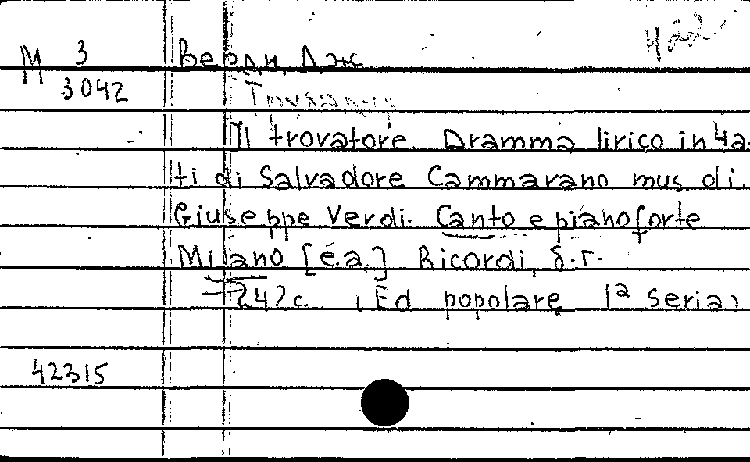 M 3
3042
Верди, Дж.
Трубадур
Il trovatore. Dramma lirico in 4 a-
ti di Salvadore Cammarano mus di.
Giuseppe Verdi. Canto e pianoforte
Milano [é.a.] Ricordi, б.г.
242c. (Ed popolare 1ª seria)
42315